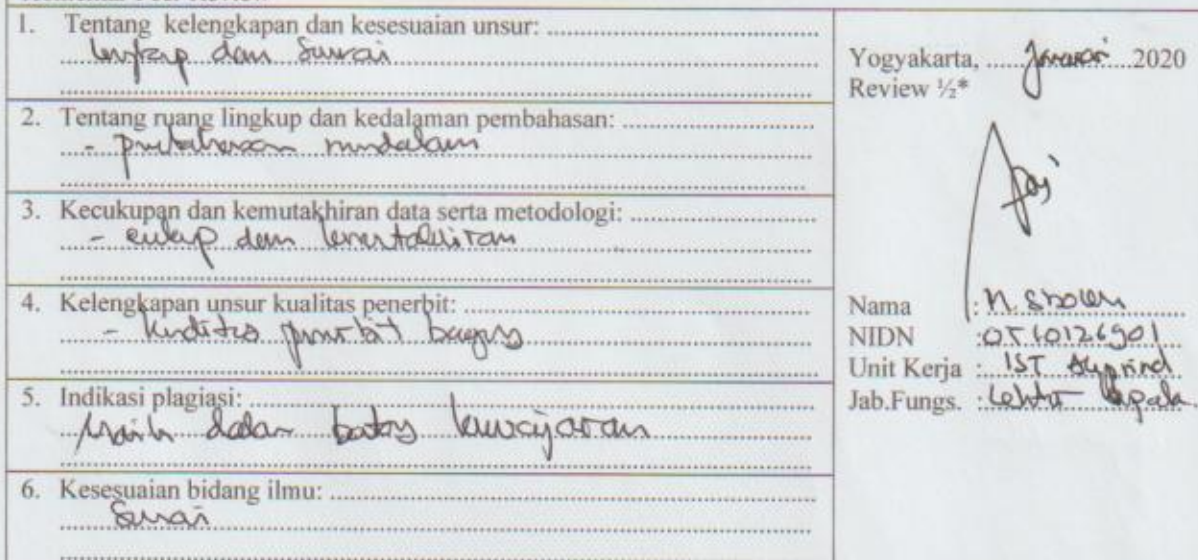 1. Tentang kelengkapan dan kesesuaian unsur:
lengkap dan sesuai
2. Tentang ruang lingkup dan kedalaman pembahasan:
- pembahasan mendalam
3. Kecukupan dan kemutakhiran data serta metodologi:
- cukup dan
4. Kelengkapan unsur kualitas penerbit:
- kualitas penerbit bagus
5. Indikasi plagiasi:
Masih dalam batas kewajaran
6. Kesesuaian bidang ilmu:
Sesuai
Yogyakarta, Januari 2020
Review ½*
Nama : M. Sholeh
NIDN :0510126901
Unit Kerja : IST Akprind
Jab.Fungs. : Lektor Kepala